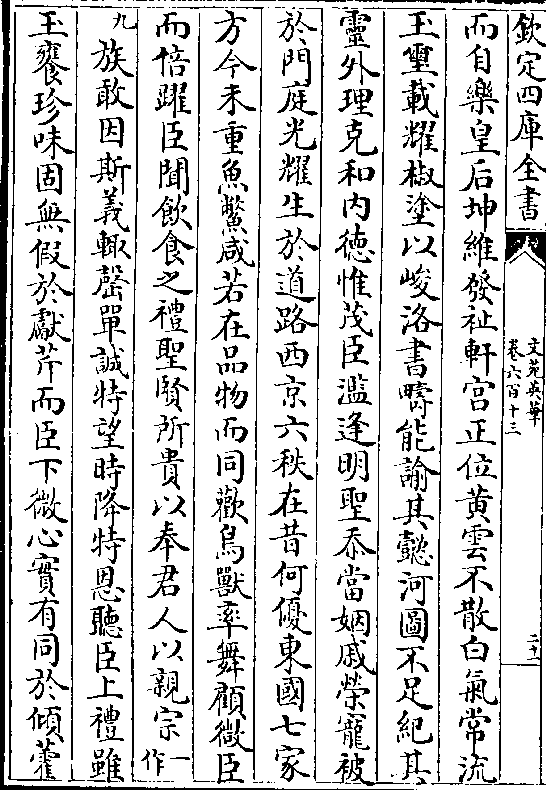 欽定四庫全書
文苑英華
卷六百十三
二十二
而自樂皇后坤維發祉軒宫正位黄雲不散白氣常流
玉璽載耀椒塗以峻洛書疇能諭其懿河圖不足紀其
靈外理克和内德惟茂臣濫逢明聖忝當姻戚榮寵被
於門庭光耀生於道路西京六秩在昔何優東國七家
方今未重魚鱉咸若在品物而同歡鳥獸率舞顧微臣
而倍躍臣聞飲食之禮聖賢所貴以奉君人以親宗一作
九族敢因斯義輙罄單誠特望時降特恩聽臣上禮雖
玉饔珍味固無假於獻芹而臣下微心實有同於傾藿